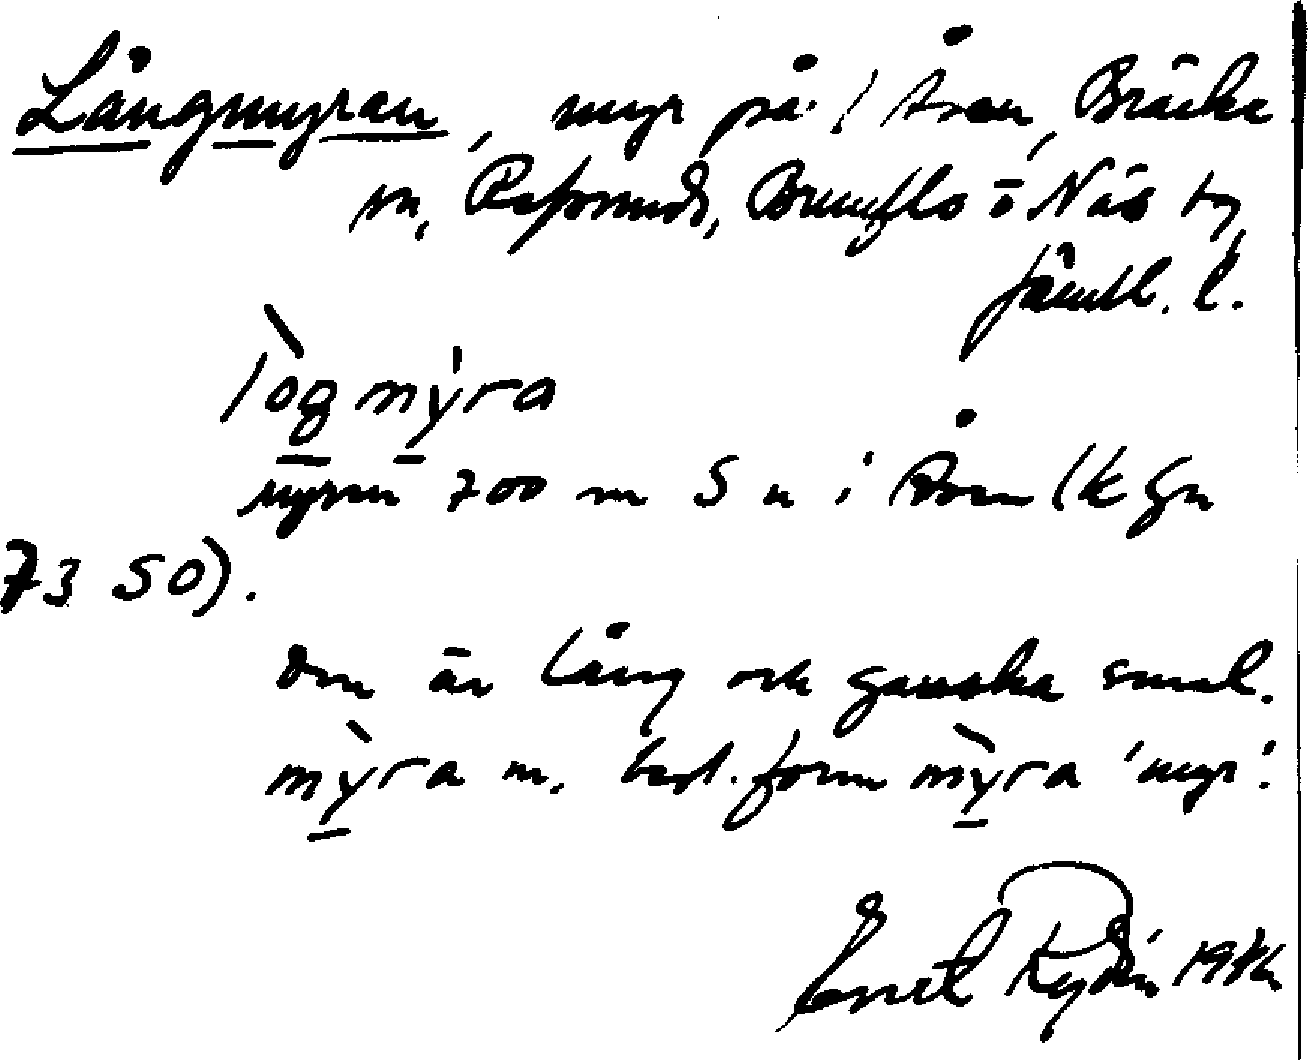 Långmyran, myr på / Åsen, Bräcke
sn, Refsunds, Brunflo o Näs tg
Jämtl. l.
lògmỳra
myren 700 m S u i Åsen (k Gn
73 SO).
Den är lång och ganska smal.
mỳra m. best. form mỳra 'myr'.
Rydén